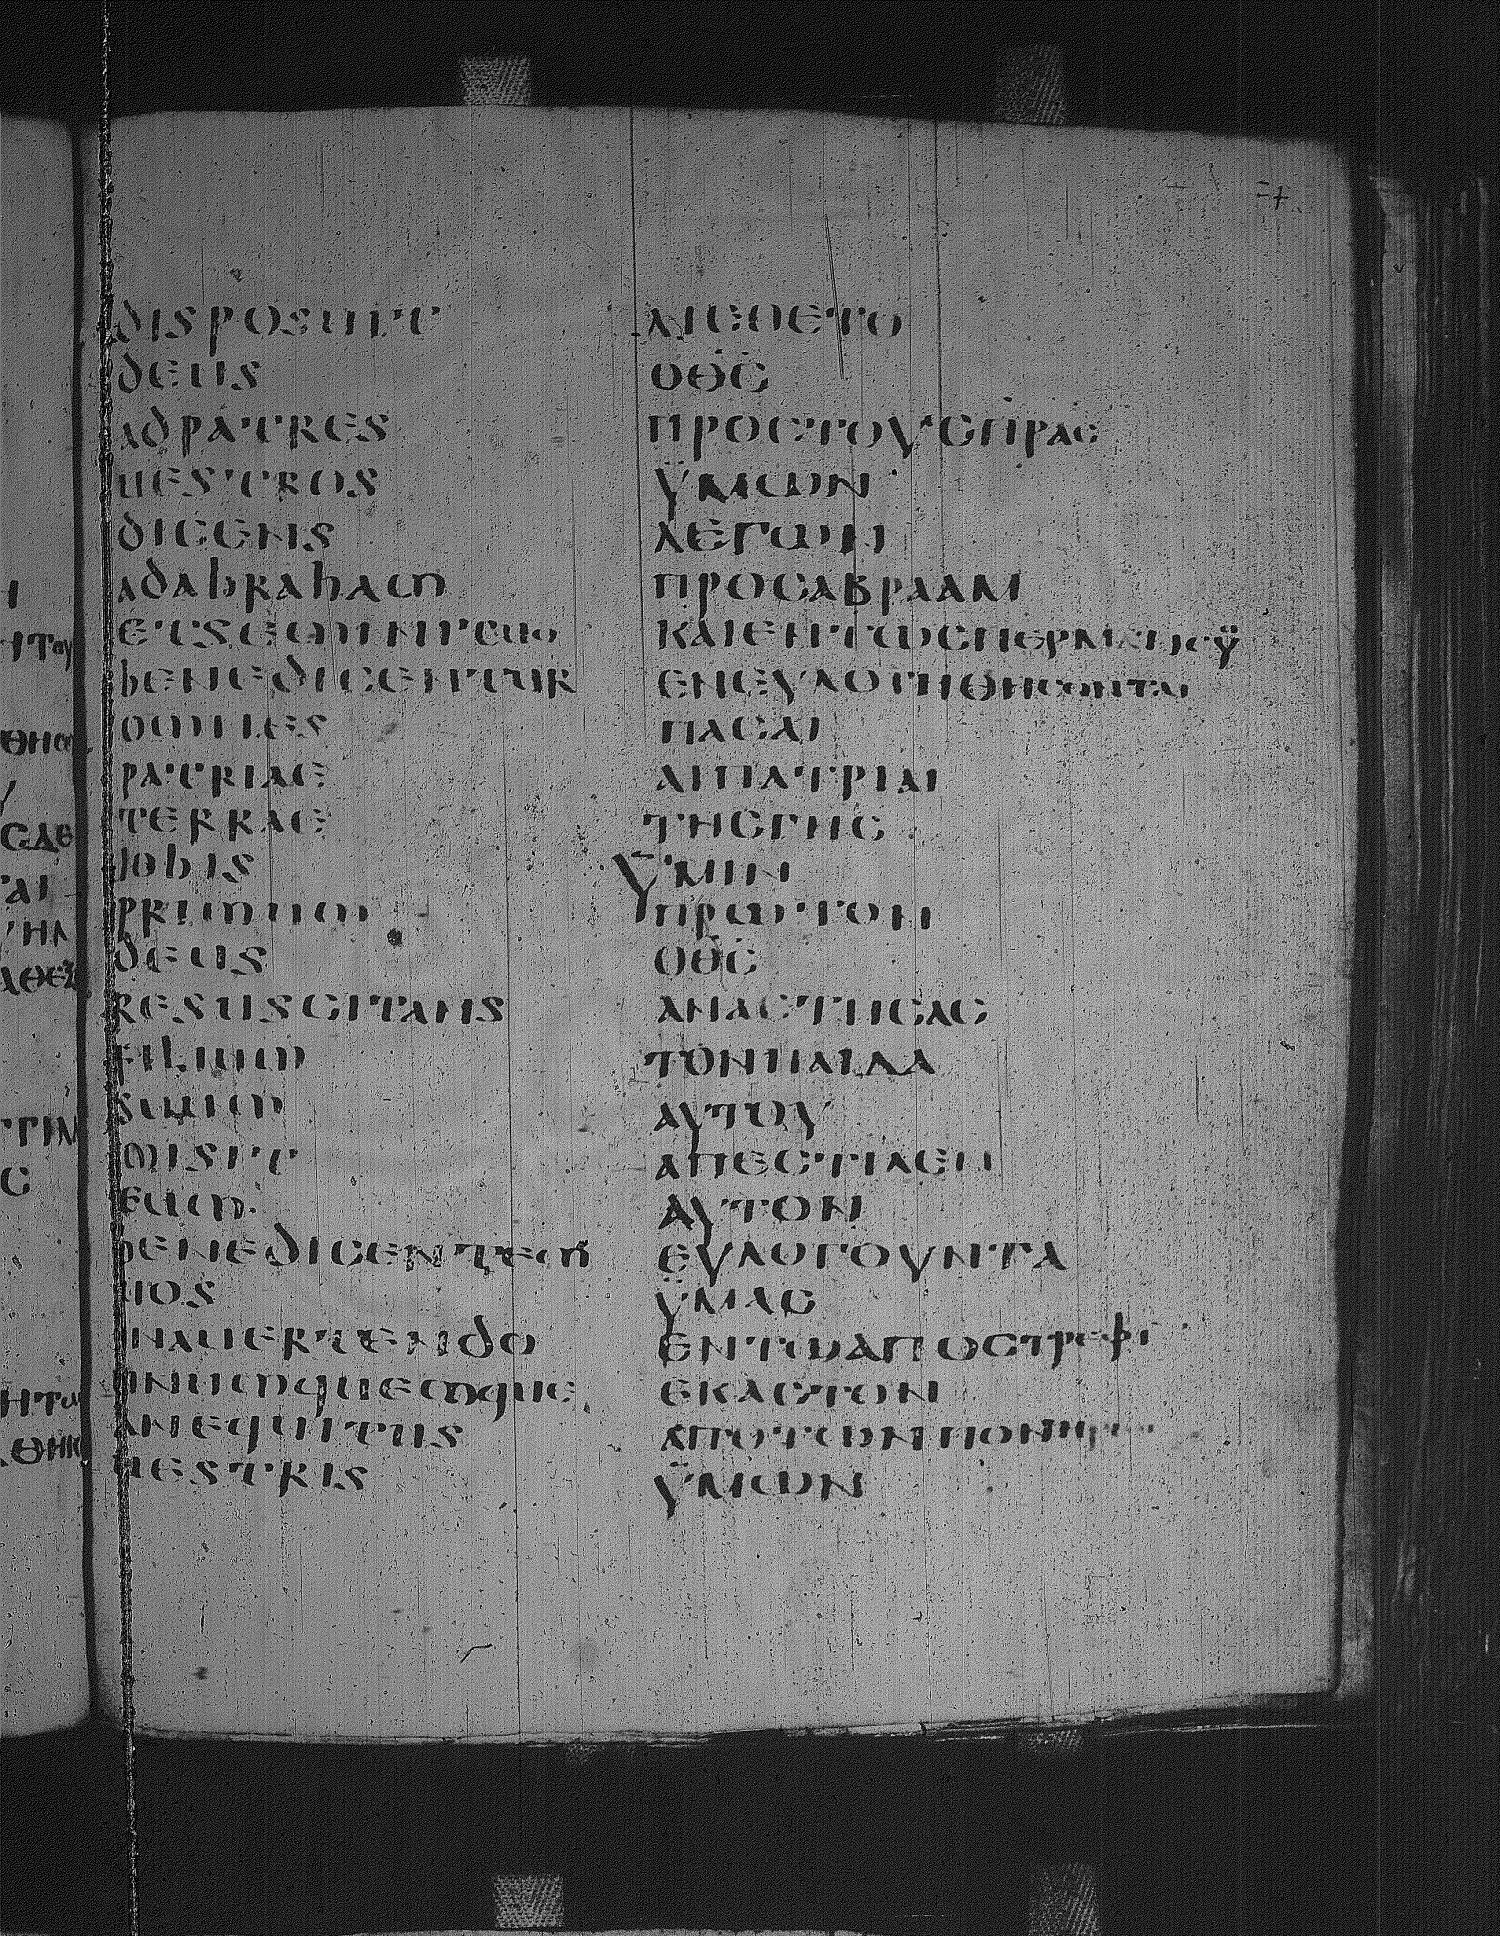 disposuit
deus
adpatres
uestros
dicens
adabraham
etseminituo
benedicentur
omnes
patriae
terrae
uobis
primum
deus
resuscitans
filium
suum
misit
eum
benedicentem
uos
inauertendo
unumquemque
anequitiis
uestris
ΔΙΕΘΕΤΟ
ΟΘϹ
ΠΡΟϹΤΟΥϹΠΡΑϹ
ΫΜΩΝ
ΛΕΓΩΝ
ΠΡΟϹΑΒΡΑΑΜ
ΚΑΙΕΝΤΩϹΠΕΡΜΑΤΙϹΟΥ
ΕΝΕΥΛΟΓΗΘΗϹΟΝΤΑΙ
ΠΑϹΑΙ
ΑΙΠΑΤΡΙΑΙ
ΤΗϹΓΗϹ
ΫΜΙΝ
ΠΡΩΤΟΝ
ΟΘϹ
ΑΝΑϹΤΗϹΑϹ
ΤΟΝΠΑΙΔΑ
ΑΥΤΟΥ
ΑΠΕϹΤΙΛΕΝ
ΑΥΤΟΝ
ΕΥΛΟΓΟΥΝΤΑ
ΫΜΑϹ
ΕΝΤΩΑΠΟϹΤΡΕΦΙ
ΕΚΑϹΤΟΝ
ΑΠΟΤΩΝ
ΫΜΩΝ